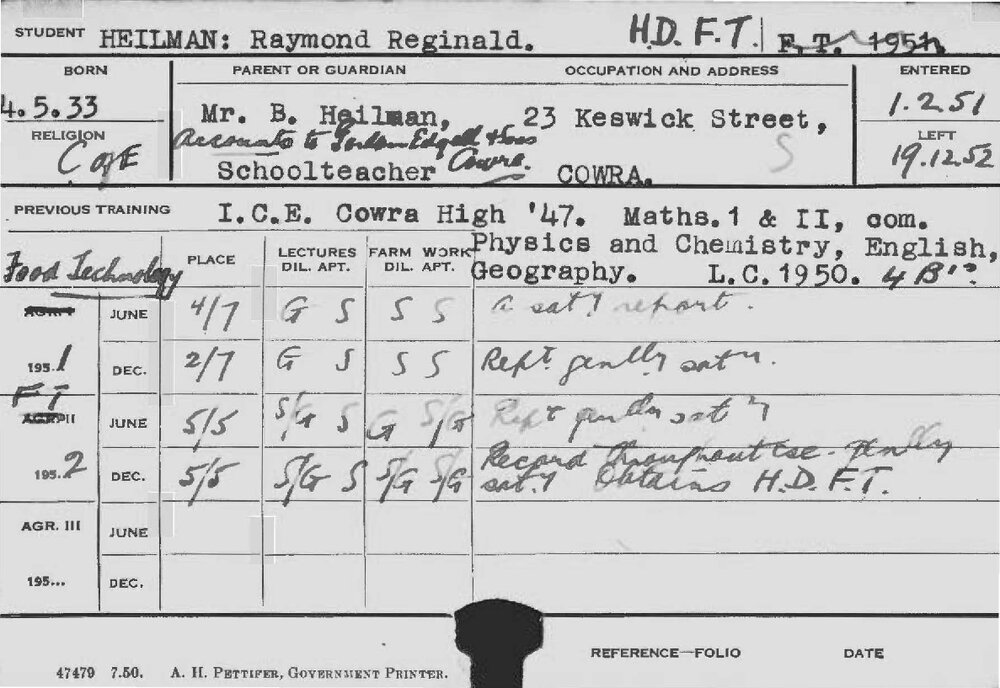 STUDENT HEILMAN: Raymond Reginald. H.D. F.T. F.T. 1951
BORN PARENT OR GUARDIAN OCCUPATION AND ADDRESS ENTERED
4.5.33 Mr. B. Heilman, 23 Keswick Street, 1.2.51
RELIGION Accounts to Gordon Edgell & Sons LEFT
C of E Schoolteacher Cowra. COWRA. S 19.12.52
PREVIOUS TRAINING I.C.E. Cowra High '47. Maths.1 & II, com.
Physics and Chemistry, English,
Geography. L.C.1950. 4 B's
Food Technology PLACE LECTURES DIL. APT. FARM WORK DIL. APT.
AGR. I JUNE 4/7 G S S S a sat'y report.
195.1 DEC. 2/7 G S S S Rep't gen'lly sat'y.
F T
AGR. II JUNE 5/5 S/G S G S/G Rep't gen'lly sat'y
195.2 DEC. 5/5 S/G S S/G S/G Record throughout cse. gen'lly
sat'y Obtains H.D.F.T.
AGR. III JUNE
195... DEC.
REFERENCE—FOLIO DATE
47479 7.50. A. H. PETTIFER, GOVERNMENT PRINTER.